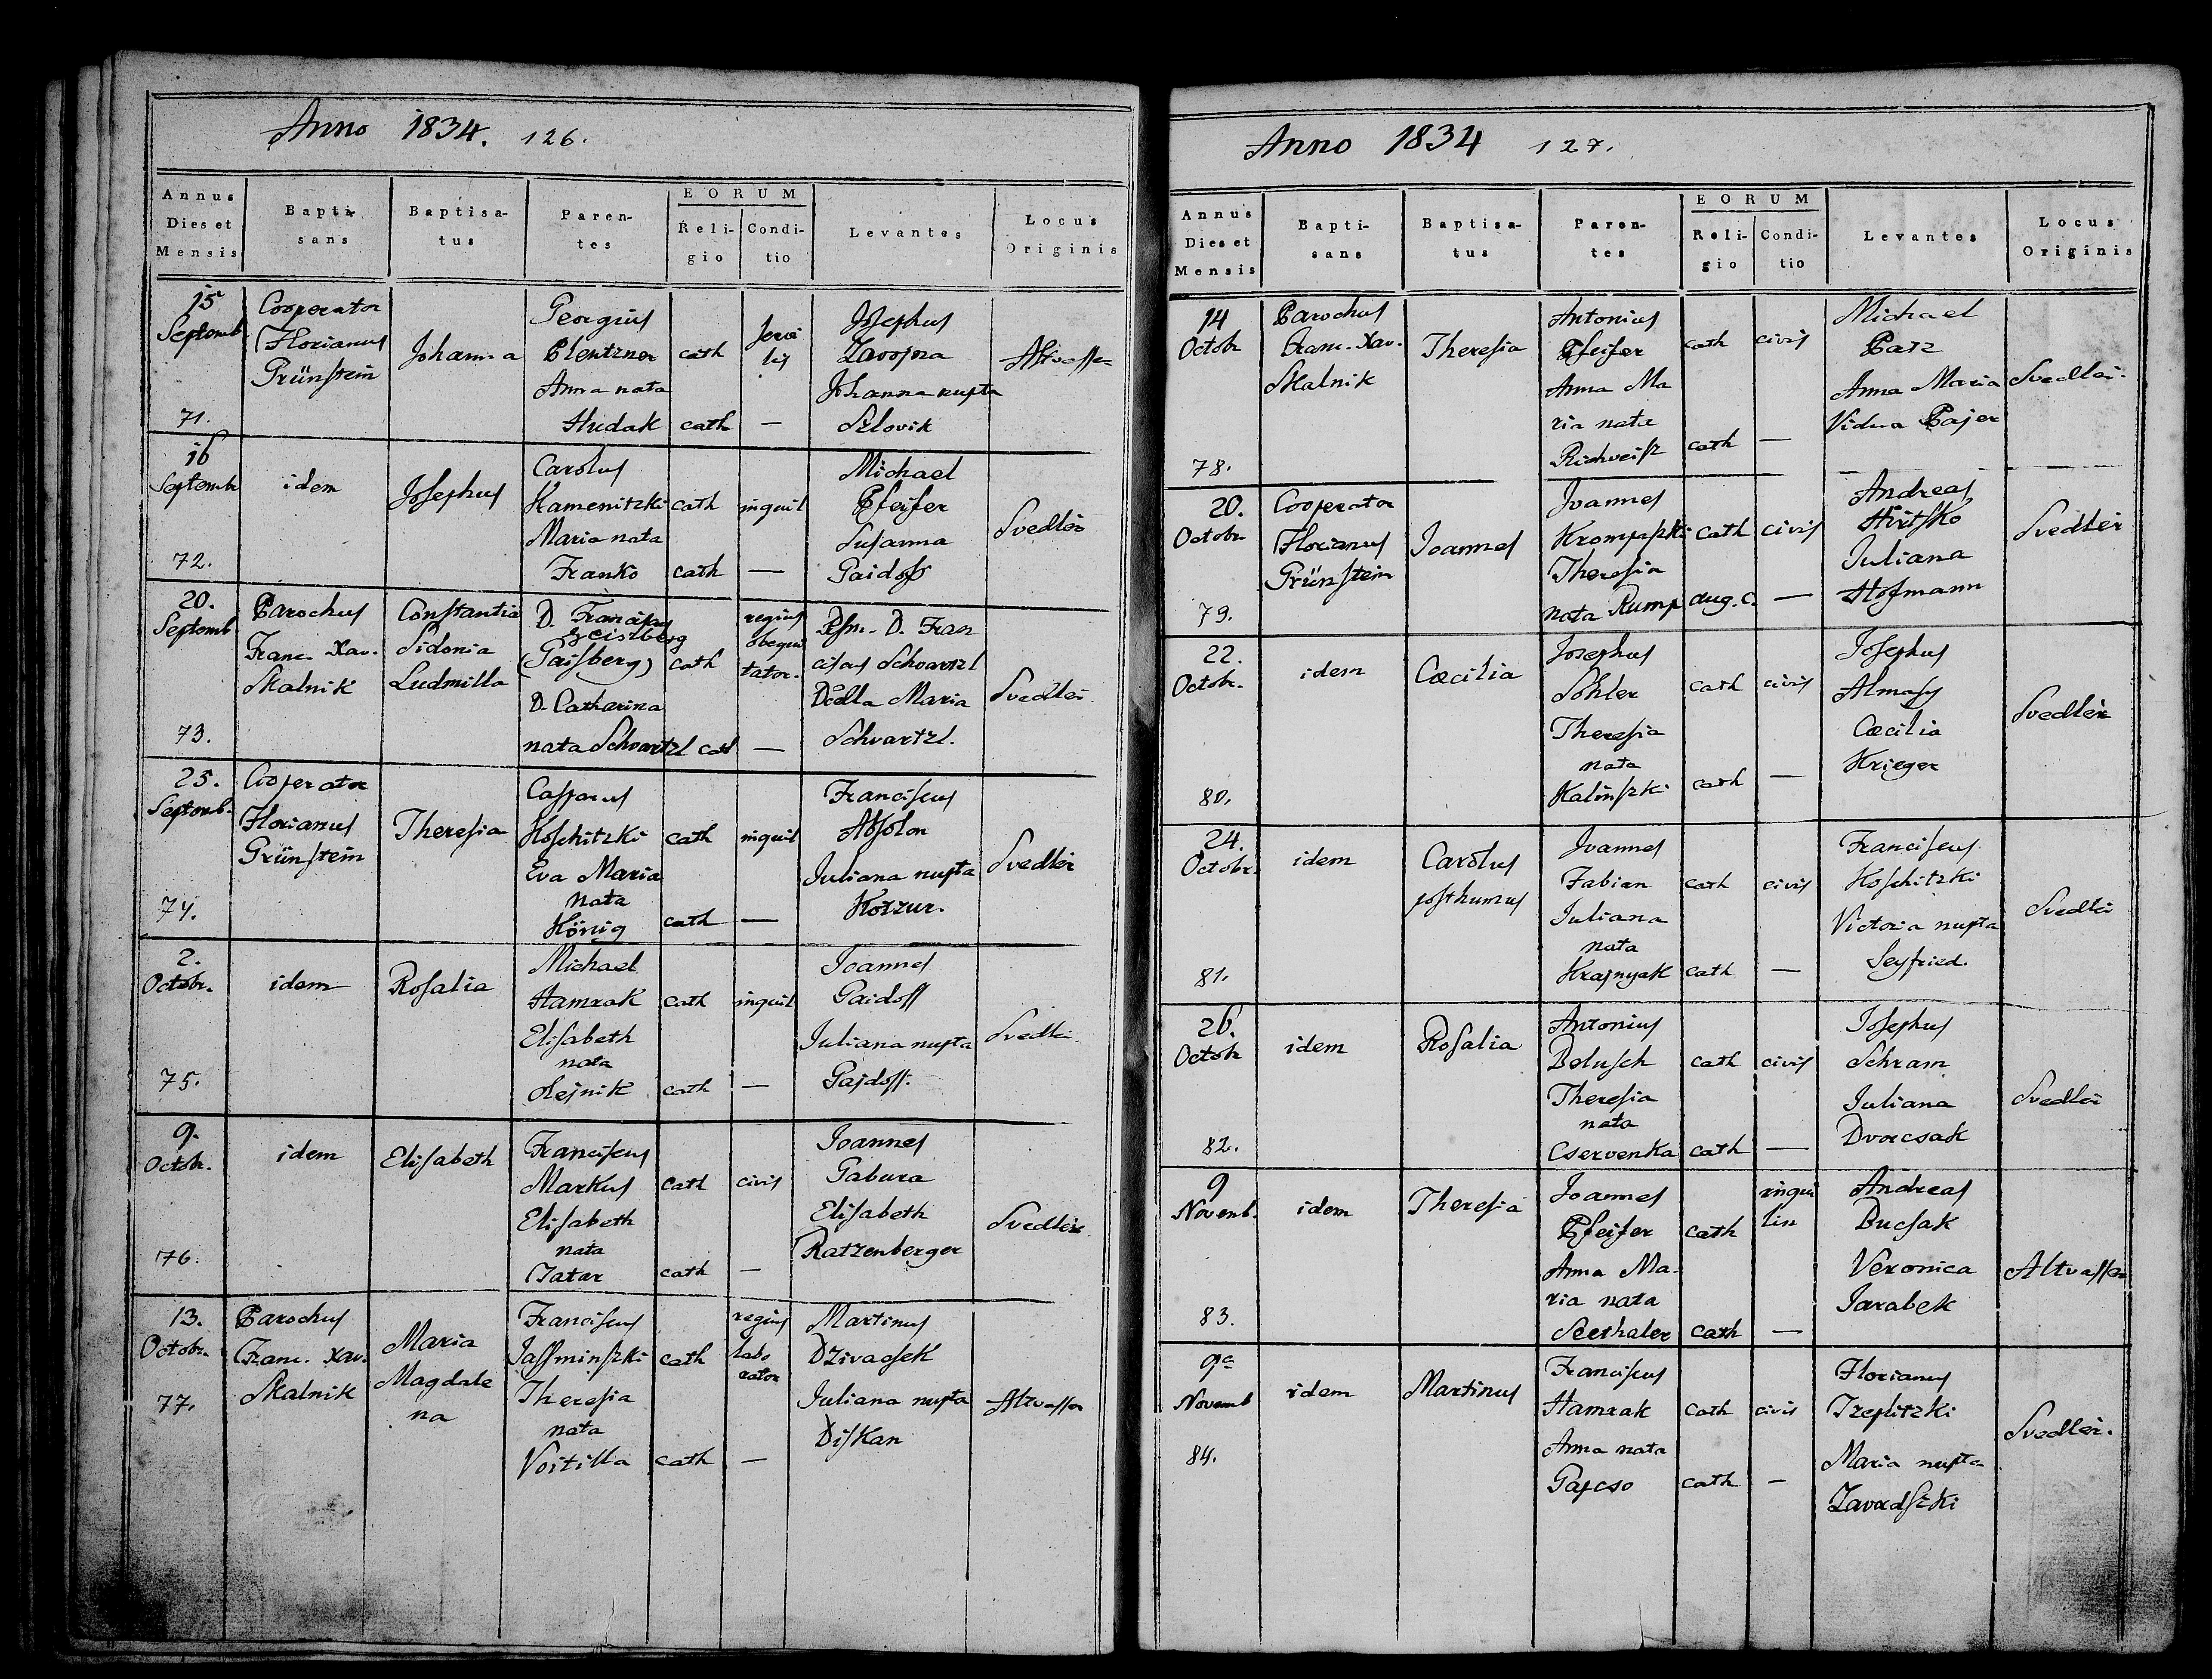 Anno 1834. 126.
Annus Dies et Mensis
Bapti-sans
Baptisa-tus
Paren-tes
EORUM
Religio
Conditio
Levantes
Locus Originis
15 Septemb
71.
Cooperator
Florianus
Grünstein
Johanna
Georgius
Plentzner
Anna nata
Hudak
cath
cath
—
Josephus
Johanna nupta
Slovik
16
Septemb
72.
idem
Josephus
Carolus
Kamenitzki
Maria nata
Franko
cath
cath
inquil
—
Michael
Pfeifer
Susanna
Gaidoss
Svedlér
20.
Septemb
73.
Parochus
Franc. Xav.
Skalnik
Constantia
Sidonia
Ludmilla
D. Franciscus
Geisberg
(Gaisberg)
D. Catharina
nata Schvartzl
cath
cath
regius
obequi
tator.
—
D. Fran
ciscus Schvartzl
Maria
Schvartzl.
Svedlér
25.
Septemb.
74.
Cooperator
Florianus
Grünstein
Theresia
Casparus
Koschitzki
Eva Maria
nata
König
cath
cath
inquil
—
Franciscus
Absolon
Juliana nupta
Kotzur.
Svedlér
2.
Octobr.
75.
idem
Rosalia
Michael
Hamrak
Elisabeth
nata
Olejnik
cath
cath
inquil
—
Joannes
Gaidoss
Juliana nupta
Gajdoss.
Svedlér
9.
Octobr.
76.
idem
Elisabeth
Franciscus
Markus
Elisabeth
nata
Tatar
cath
cath
civis
—
Joannes
Gabura
Elisabeth
Ratzenberger
Svedlér
13.
Octobr.
77.
Parochus
Franc. Xav.
Skalnik
Maria
Magdale
na
Franciscus
Jassminszki
Theresia
nata
Voitilla
cath
cath
regius
labo
rator
—
Martinus
Dzivacsek
Juliana nupta
Diskan
Altvasser
Anno 1834 127.
Annus Dies et Mensis
Bapti-sans
Baptisa-tus
Paren-tes
EORUM
Religio
Conditio
Levantes
Locus Originis
14
Octobr
78.
Parochus
Franc. Xav.
Skalnik
Theresia
Antonius
Pfeifer
Anna Ma
ria nata
Richveisz
cath
cath
civis
—
Michael
Patz
Anna Maria
Vidua Pajer
Svedlér.
20.
Octobr
79.
Cooperator
Florianus
Grünstein
Joannes
Joannes
Krompaszki
Theresia
nata Rump
cath
aug. c.
civis
—
Andreas
Hirtsko
Juliana
Hofmann
Svedlér
22.
Octobr.
80.
idem
Cæcilia
Josephus
Söhler
Theresia
nata
Kalinszki
cath
cath
civis
—
Josephus
Almasy
Cæcilia
Krieger
Svedlér
24.
Octobr.
81.
idem
Carolus
posthumus
Joannes
Fabian
Juliana
nata
Krajnyak
cath
cath
civis
—
Franciscus
Koschitzki
Victoria nupta
Seyfried.
Svedlér
26.
Octobr
82.
idem
Rosalia
Antonius
Bolusch
Theresia
nata
Cservenka
cath
cath
civis
—
Josephus
Schram
Juliana
Dvorcsak
Svedlér
9
Novemb.
83.
idem
Theresia
Joannes
Pfeifer
Anna Ma-
ria nata
Seethaler
cath
cath
inqui
lin
—
Andreas
Bucsak
Veronica
Jarabek
Altvasser
9a
Novemb
84.
idem
Martinus
Franciscus
Hamrak
Anna nata
Gajcso
cath
cath
civis
—
Florianus
Tzeplitzki
Maria nupta
Zavadszki
Svedlér.